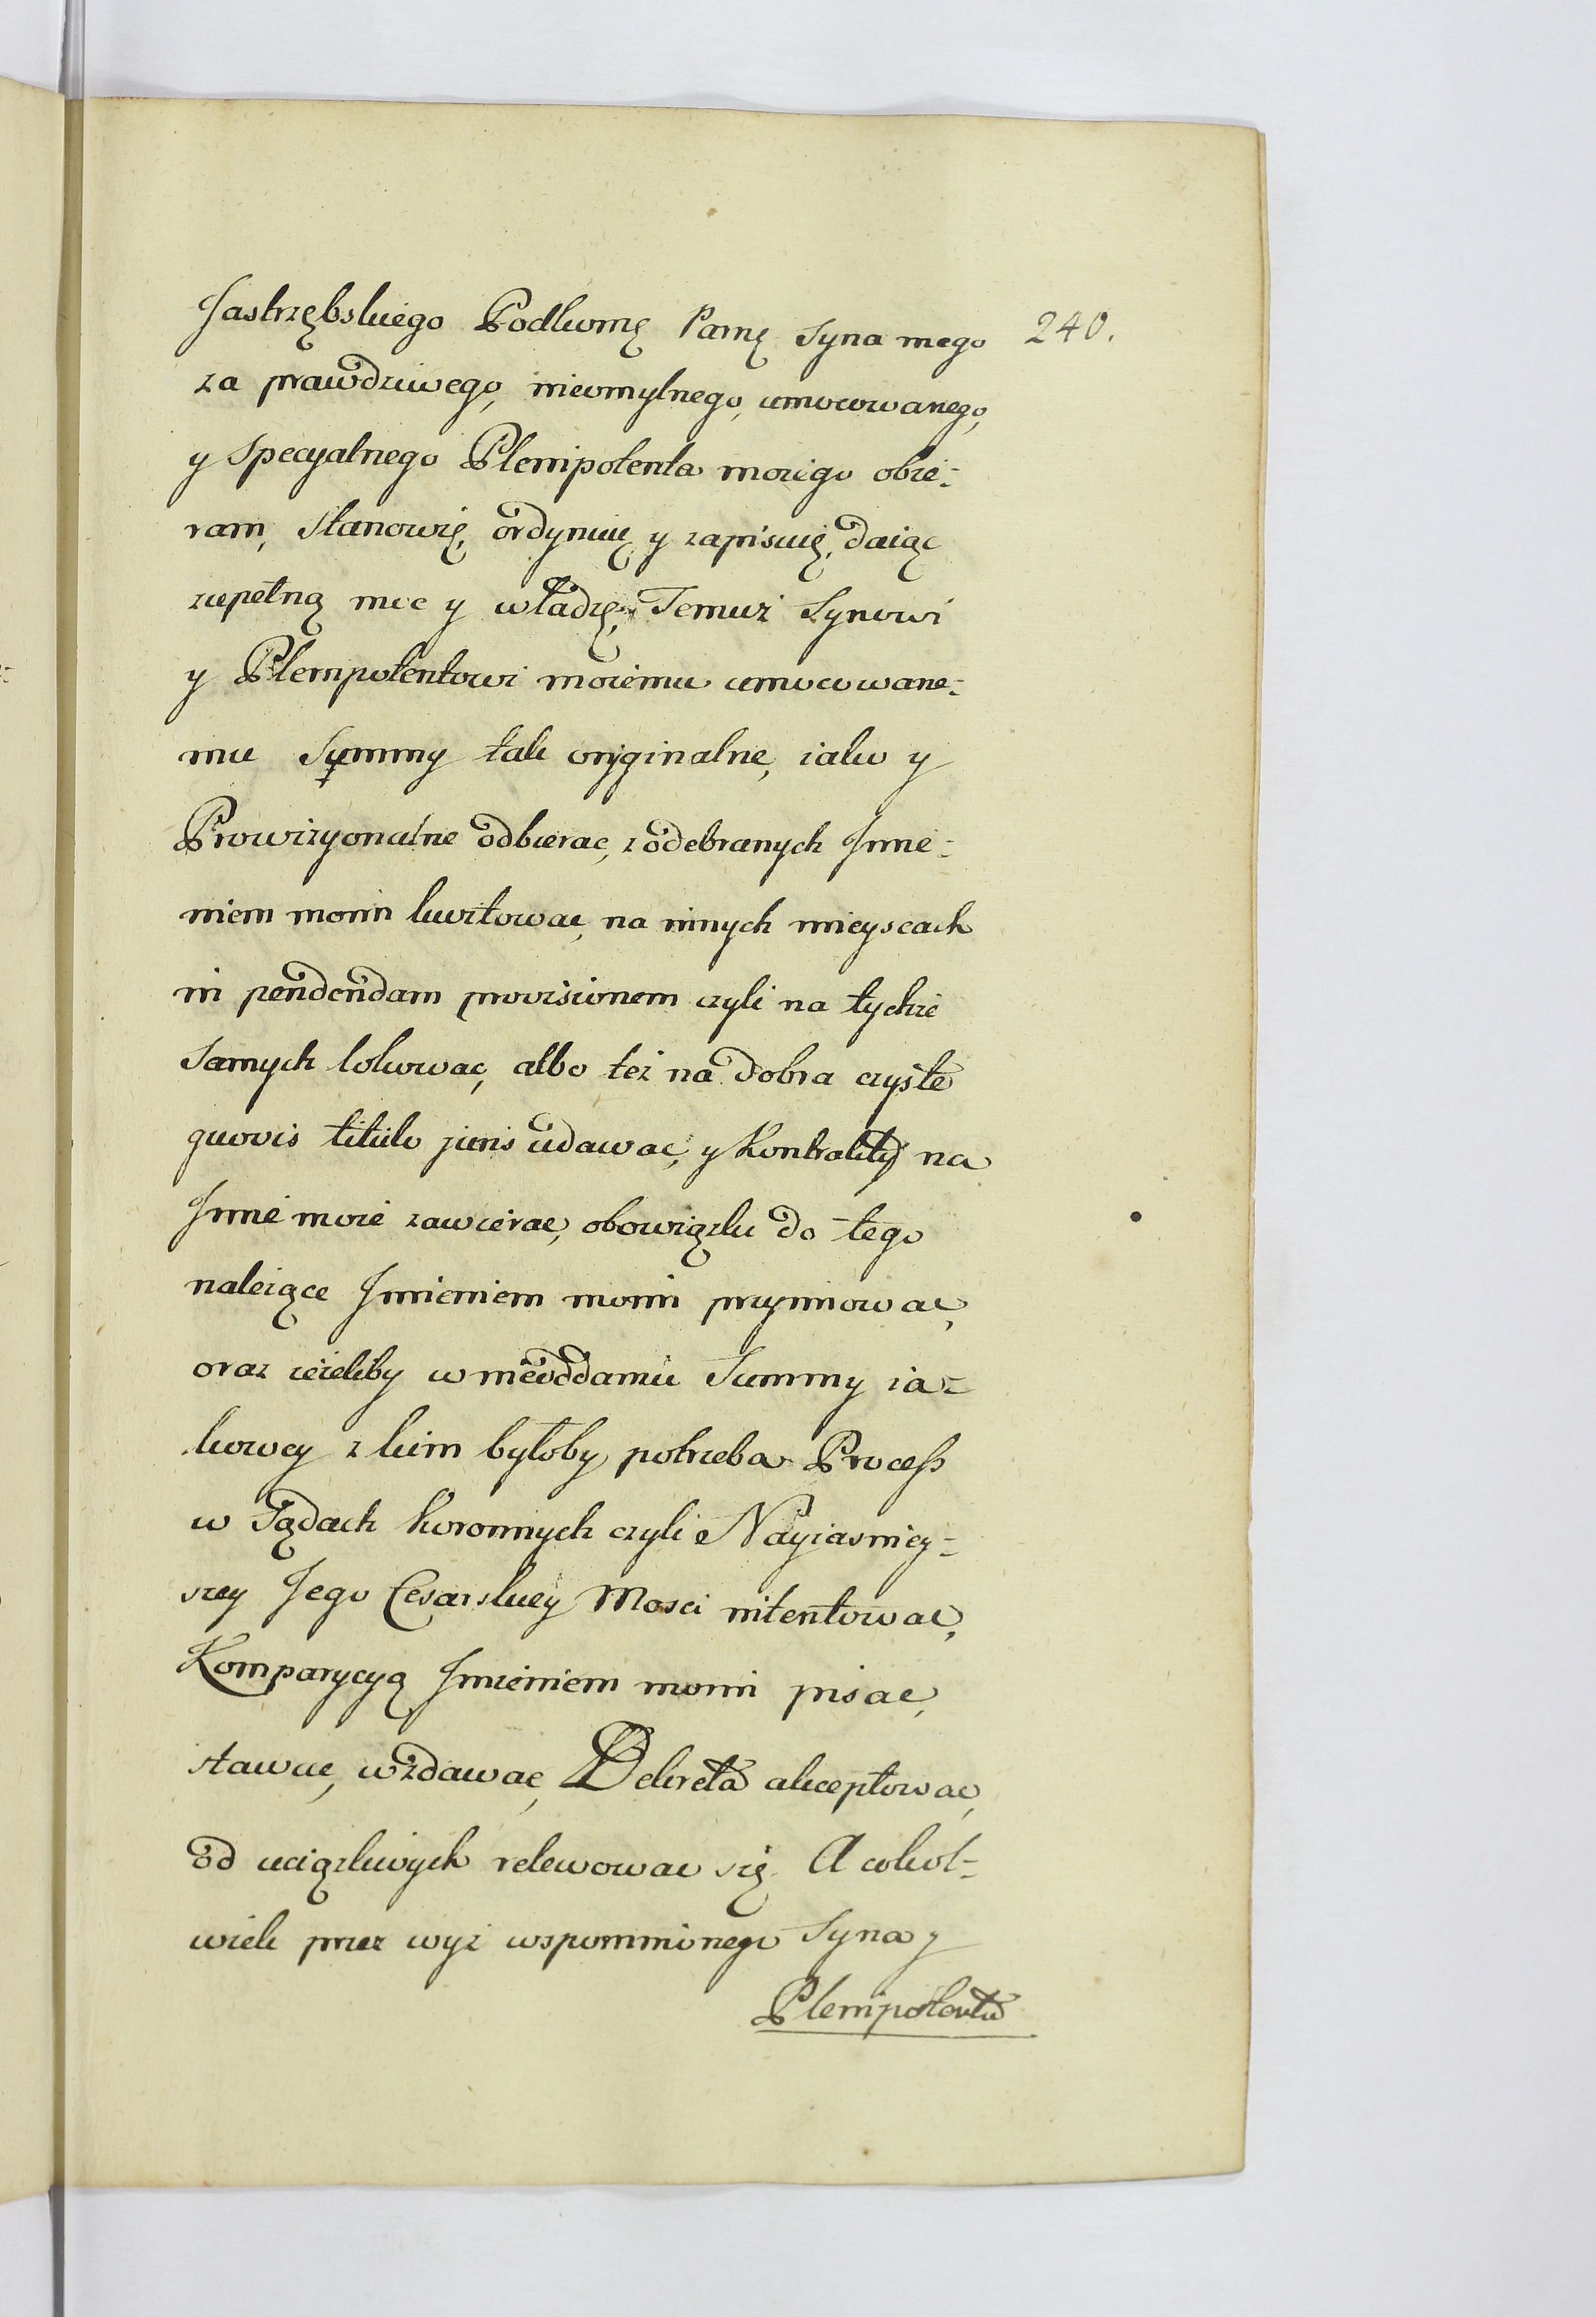 Jastrzębskiego Podkomę Parnę Syna mego 240.
za prawdziwego, nieomylnego, umocowanego,
y specyalnego Plenipotenta moiego obie-
ram, stanowię, ordynuię y zapisuię, daiąc
zupełną moc y władzę, Temuż Synowi
y Plenipotentowi moiemu umocowane-
mu Summy tak oryginalne, iako y
Prowizyonalne odbierac, z odebranych Imie-
niem moim kwitowac, na innych mieyscach
in pendendam provisionem czyli na tychże
samych lokowac, albo też na dobra czyste
quovis titulo juris udawac, y Kontrakty na
Imie moie zawierac, obowiązki do tego
należące Imieniem moim przyimowac,
oraz ieżeliby w nieoddaniu Summy ia-
kowey z kim byłoby potrzeba Process
w Sądach Koronnych czyli Nayiasniey-
szey Jego Cesarskiey Mosci intentowac,
Komparycyą Imieniem moim pisac,
stawac, wzdawac, Dekreta akceptowac,
od uciążliwych relewowac się. A cokol-
wiek przez wyż wspomnionego Syna y
Plenipotenta